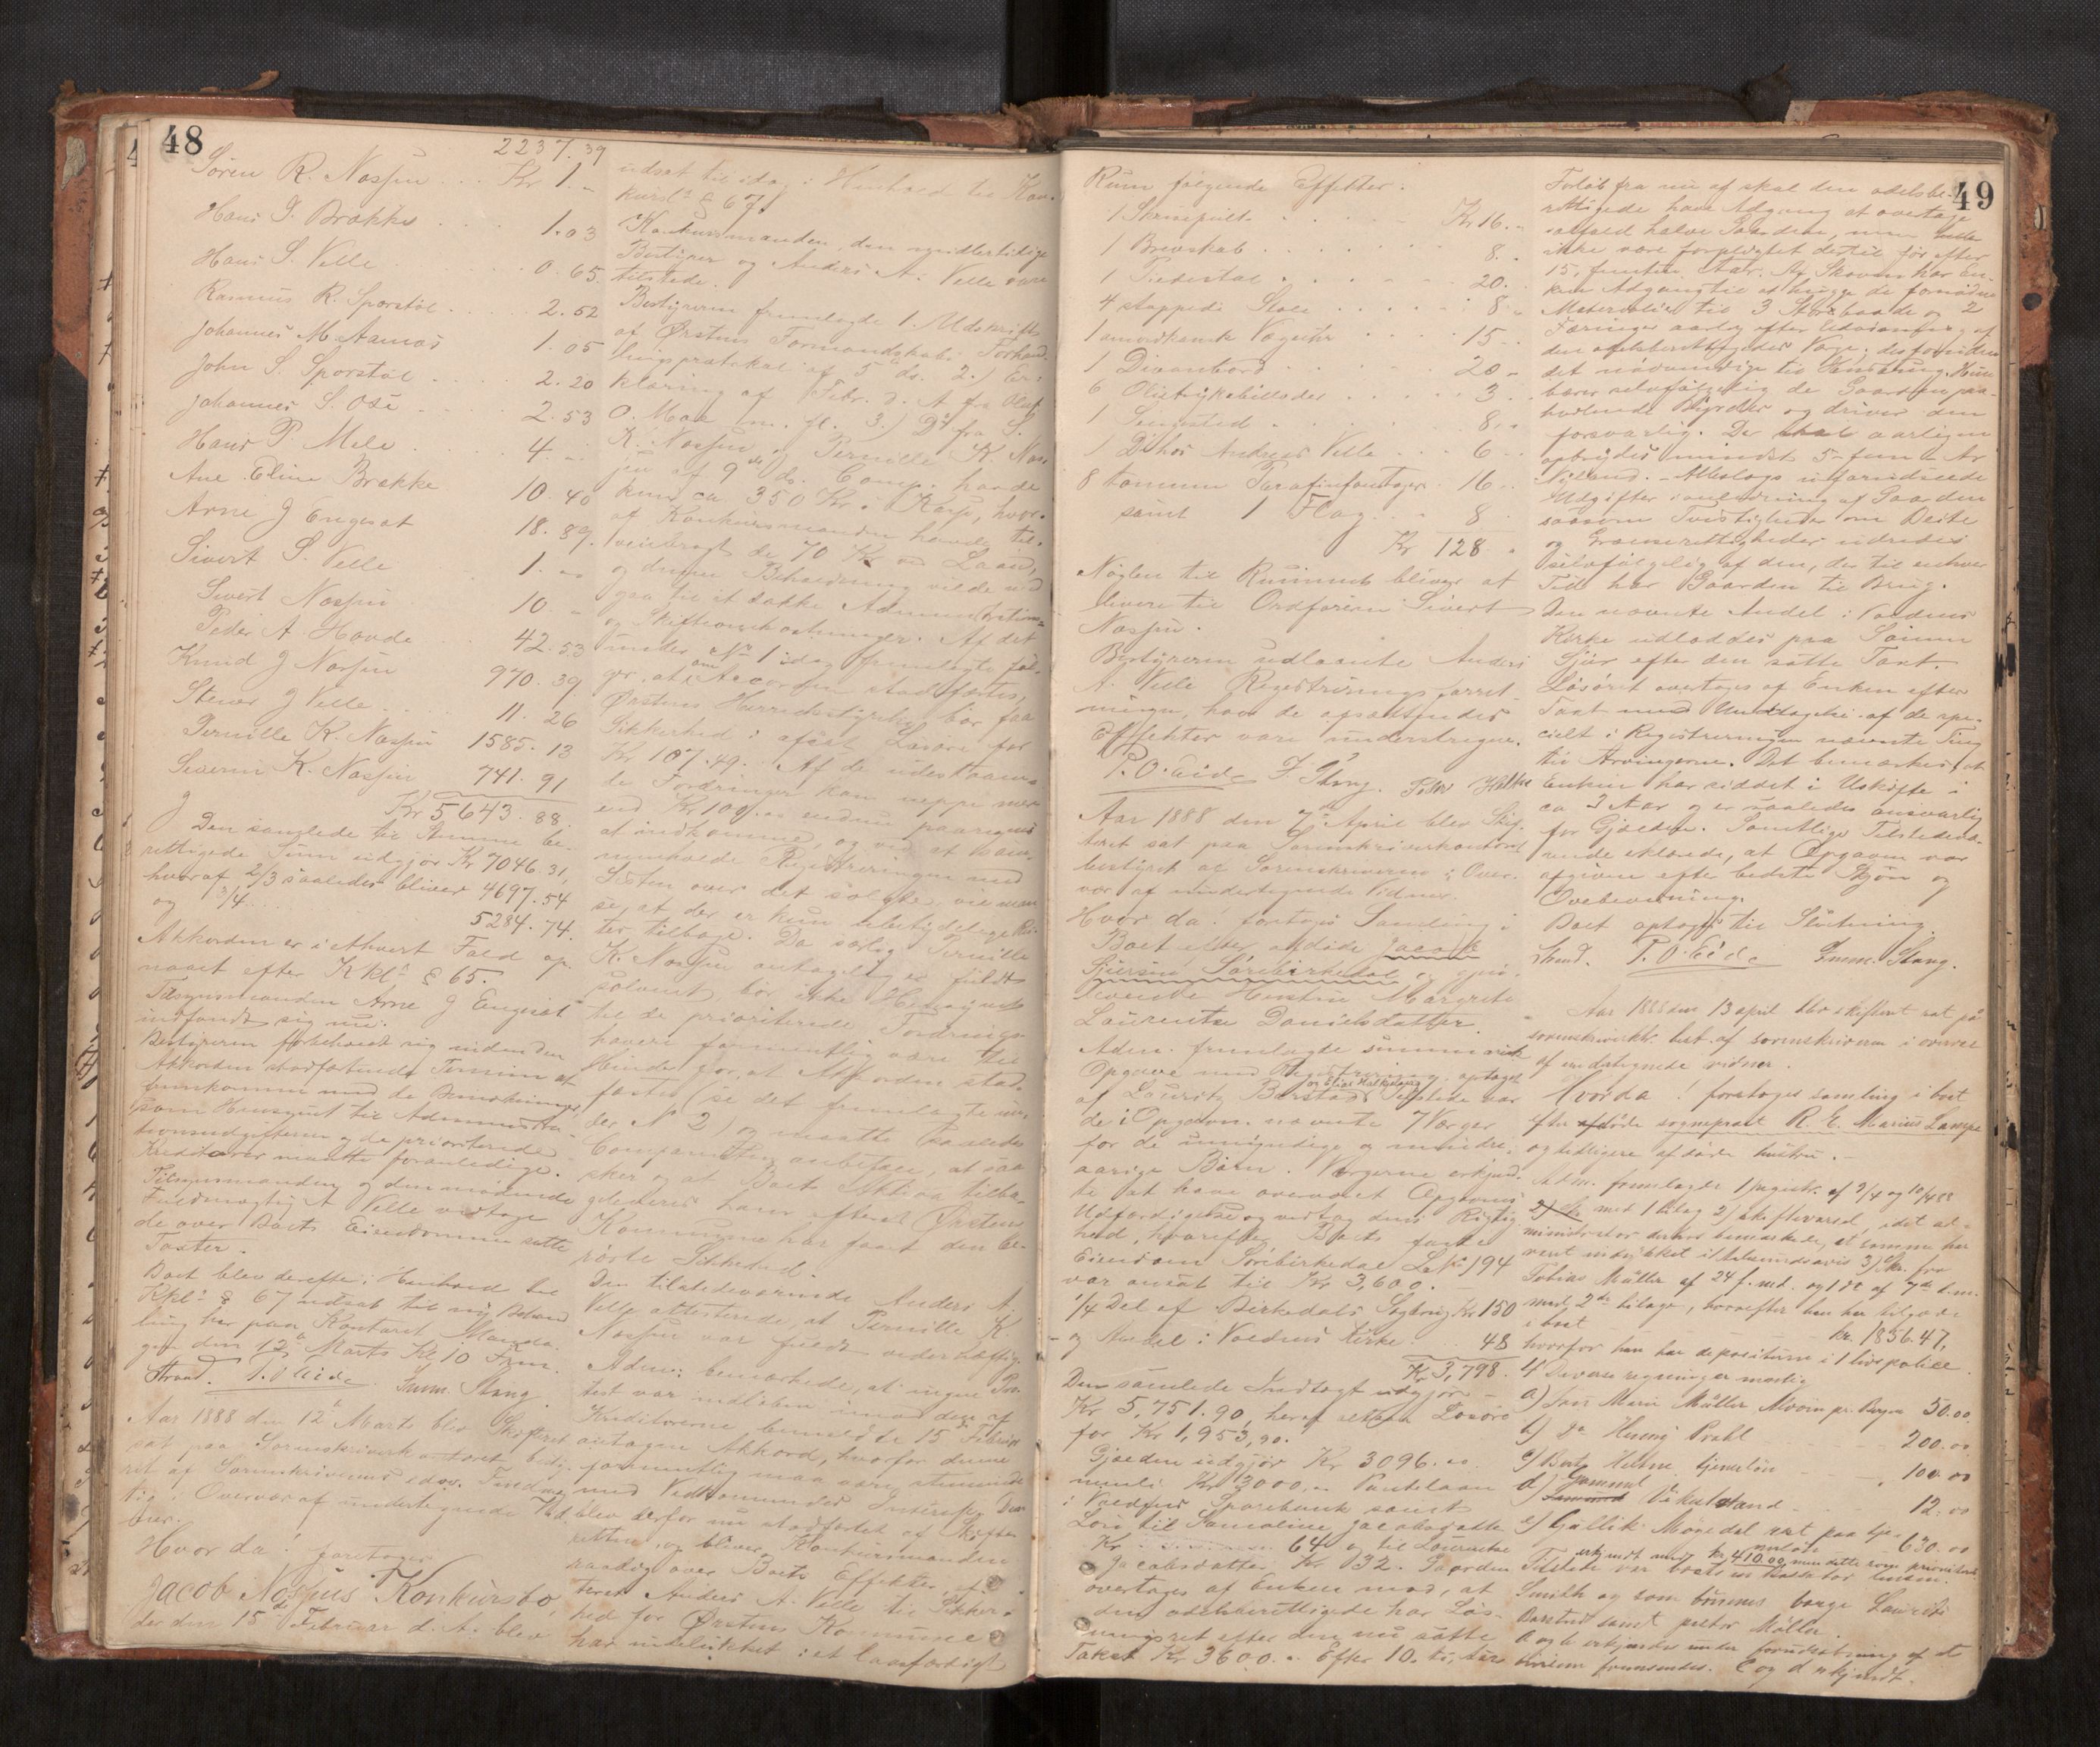 48
2237.39
Søren R. Nasjen . . . Kr 1. -
Hans P. Brække . . . . 1.03
Hans S. Velle . . . . 0.65
Rasmus R. Sporstøl . . . . 2.52
Johannes M. Aamas 1.05
John S. Sporstøl . . . 2.20
Johannes S. Ose . . . . 2.53
Hans P Mele . . . . 4. -
Ane Eline Brække 10.40
Arne J Engeset 18.89
Sivert S. Velle 1. -
Sivert Nasjen 10. -
Peder A Hovde . . . 42.53
Knud J Nasjen 970.39
Stener J Velle . . . . 11.26
Pernille K. Nasjen 1585.13
Severin K. Nasjen 741.91
Kr 5643.88.
Den samlede til Stemme be-
rettigede Sum udgjør Kr 7046.31,
hvoraf 2/3 saaledes bliver 4697.54
og 3/4 . . . 5284.74.
Akkorden er i ethvert Fald op-
naaet efter Kkl. § 65.
Tilsynsmanden Arne J Engeset
indfandt sig nu.
Bestyreren forbeholdt sig inden den
Akkorden stadfæstende Termin at
fremkomme med de Bemærkninger,
som Hensynet til Administra-
tionsudgifterne og de prioriterede
Kreditorer maatte foranledige.
Tilsynsmanden og den mødende
Fuldmægtig A Velle vedtoge
de over Boets Eiendomme satte
Taxter.
Boet blev derefter i Henhold til
Kkl. § 67 udsat til ny Behand
ling her paa Kontoret Manda-
gen den 12te Marts Kl 10 Fm.
Strand. P. O Eide. Emm. Stang
Aar 1888 den 12te Marts blev Skifteret
sat paa Sorenskriverkontoret besty-
ret af Sorenskriverens edsv. Fuldmæg
tig i Overvær af undertegnede Vid-
ner.
Hvor da! foretoges
Jacob Nasjens Konkursbo,
der den 15de Februar d. A. blev
udsat til idag i Henhold til Kon-
kursl. § 67.
Konkursmanden, den midlertidige
Bestyrer og Anders A. Velle vare
tilstede.
Bestyreren fremlagde 1. Udskrift
af Ørstens Formandskabs Forhand-
lingsprotokol af 5te ds. 2.) Er-
klæring af Febr. d. A fra Oluf
O. Mao m. fl. 3.) Do fra S.
K. Nasjen og Pernille K. Nas-
jen af 9de ds. Comp. havde
kun ca. 350 Kr. i Kasse, hvor-
af Konkursmanden havde til-
veiebragt de 70 Kr ved Laan,
og denne Beholdning vilde med
gaa til at dække Administrations-
og Skifteomkostninger. Af det
under No 1 idag fremlagte føl-
ger, at om Accorden stadfæstes,
Ørstens Herredsstyrelse bør faa
Sikkerhed i afæst Løsøre for
Kr 107.49. Af de udestaaen-
de Fordringer kan neppe mere
end Kr 100. - endnu paaregnes
at indkomme, og ved at sam-
menholde Registreringen med
Listen over det solgte, vil man
se, at der er kun ubetydelige Ak-
tiver tilbage. Da særlig Pernille
K. Nasjen antagelig er fuldt
solvent bør ikke Hensynet
til de prioriterede Fordrings-
havere formentlig være til
Hinder for, at Akkorden stad-
fæstes (se det fremlagte un-
der N 2) og maatte saaledes
Comparenten anbefale, at saa
sker og at Boets Aktiva tilba-
geleveres ham efterat Ørstens
Kommune har faaet den be-
rørte Sikkerhed.
Den tilstedeværende Anders A.
Velle attesterede, at Pernille K.
Nasjen var fuldt vederhæftig.
Adm. bemærkede, at ingen Pro-
test var indløben imod den af
Kreditorerne bemeldte 15de Februar
antagne Akkord, hvorfor denne
formentlig maa være stemmende
med Vedkommendes Interesse. Den
blev derfor nu stadfæstet af Skifte-
retten, og bliver Konkursmanden
raadig over Boets Effekter, ef-
terat Anders A. Velle til Sikker-
hed for Ørstens Kommune
har indelukket i et laasfærdigt
49
Rum følgende Effekter:
1 Skrivepult . . . . . Kr 16. -
1 Brevskab . . . . . . 8. -
1 Piedestal . . . . . 20. -
4 stoppede Stole . . . . . 8 -
1 amerikansk Væguhr . . . . 15 -
1 Divanbord . . . . . . 20 -
6 Olietrykbilleder . . . . . 3. -
1 Sengested . . . . . . 8. -
1 Do hos Andreas Velle . . . 6 -
8 tomme Parafinfustager . 16 -
samt 1 Flag . . . 8
Kr 128. -
Nøglen til Rummet bliver at
levere til Ordføreren Sivert
Nasjen.
Bestyreren udlaante Anders
A. Velle Registreringsforret-
ningen, hvor de opsatsendes
Effekter vare understregne.
P. O. Eide E. Stang. Peter Haltke
Aar 1888 den 7de April blev Skif-
teret sat paa Sorenskriverkontoret
bestyret af Sorenskriveren i Over-
vær af undertegnede Vidner.
Hvor da foretoges Samling i
Boet efter afdøde Jacob
Sjursen Sørebirkedal og gjen-
levende Hustru Margrete
Laurentse Danielsdatter.
Adm. fremlagde summarisk
Opgave med Registrering optaget
af Lauritz Barstad og Elias Halkjelsvig. Tilstede var
de i Opgaven nævnte 7 Værger
for de umyndige og mindre-
aarige Børn. Værgerne erkjend-
te at have overværet Opgavens
Udfærdigelse og vedtog dens Rigtig-
hed, hvorefter Boets faste
Eiendom Sørebirkedal L. No 194
var ansat til Kr 3,600. -
1/4 Del af Birkedals Sagbrug Kr 150
- og Andel i Voldens Kirke 48
Kr 3,798.
Den samlede Indtægt udgjør -
Kr 5,751.90, heraf altsaa Løsøre
for Kr 1,953,90.
Gjælden udgjør Kr 3096. -
nemlig Kr 3000, - Pantelaan
i Voldens Sparebank samt
Løn til Samoline Jacobsdatter
Kr . . . . . 64 og til Laurentse
Jacobsdatter Kr 32. Gaarden
overtages af Enken mod, at
den odelsberettigede har Løs-
ningsret efter den nu satte
Takst Kr 3600. - Efter 10. ti, Aars
Forløb fra nu af skal den odelsbe-
rettigede have Adgang at overtage
isaafald halve Gaarden, men
ikke være forpligtet dertil før efter
15, femten Aar. Af Skoven har En-
ken Adgang til at hugge de fornødne
Materialier til 3 Storebaade og 2
Færinger aarlig efter Udvisning af
den odelsberettigedes Værge; desforuden
det nødvendige til Gardering. Hun
bærer selvfølgelig de Gaarden paa-
hvilende Byrder og driver den
forsvarlig. Der skal aarligen
opbrydes mindst 5 - fem - Ar
Nyland. - Alleslags uforudseede
Udgifter i anledning af Gaarden
saasom Tvistigheder om Deite
og Grænserettigheder udredes
selvfølgelig af den, der til enhver
Tid har Gaarden til Brug.
Den nævnte Andel i Voldens
Kirke udloddes paa Sønnen
Sjur efter den satte Taxt.
Løsøret overtages af Enken efter
Taxt med Undtagelse af de spe-
cielt i Registreringen nævnte Ting
til Arvingerne. Det bemærkes, at
Enken har siddet i Uskifte i
ca 3 Aar og er saaledes ansvarlig
for Gjælden. Samtlige Tilstedevæ-
rende erklærede, at Opgaven var
afgiven efter bedste Skjøn og
Overbevisning.
Boet optoges til Slutning.
Strand. P. O. Eide Emm. Stang.
Aar 1888 den 13 april blev skifteret sat på
sorenskriverktr. best. af sorenskriveren i overvær
af undertegnede vidner.
Hvor da! foretoges samling i boet
efter afdøde sogneprest R. E. Marius Lampe
og tidligere afdøde hustru. -
Adm. fremlagde 1) registr. af 9/4 og 10/4 88
med 1 bilag 2) skiftevared, idet ad-
ministrator derhos bemærkede, at samme har
været indrykket i Aalesunds avis 3) Skr. fra
Tobias Müller af 24 f. md. og 1 do af 7de d. m.
med 2de bilage, hvorefter han har tilgode
i boet kr. 1856.47,
hvorfor han har depositum i 1 livspolice
4 Diverse regninger nemlig
a) fra Marie Müller Alvøen pr. Bergen 50.00
b) Do Henny Prahl . . . 200.00
c) Berte Helsne tjenerløn . . . 100.00
d) Gammel Vikestrand . . . 12.00
e) Gullik Mogedal rest paa tje-
nerløn 630.00
erkjendt med kr 410.00 men dette som prioriteret
Tilstede var boets
Smith og som børnenes værge Laurits
Barstad samt pastor Møller.
a og b erkjendes under forudsætning af at
fremsendes. C og d erkjendt.